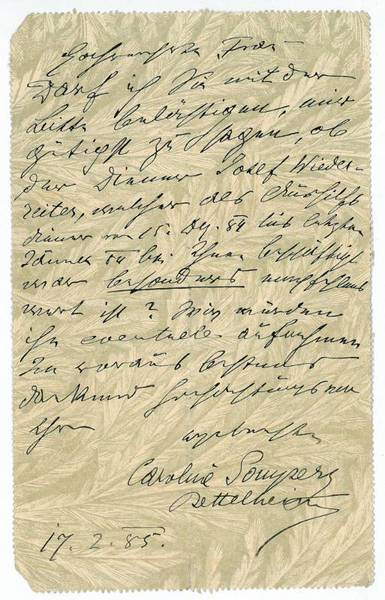 Hochverehrte Frau
Darf ich Sie mit der
Bitte belästigen, mir
gütigst zu sagen, ob
der Diener Josef Wieder-
reiter, welcher als
diener v. 15. Dez. 84 bis letzten
Jänner bei Ihnen beschäftigt
war besonders empfehlens
wert ist? Wir würden
ihn eventuell aufnehmen
Im voraus bestens
dankend hochachtungsvoll
Ihre
ergebenste
Caroline Gomperz
Bettelheim
17. 2. 85.